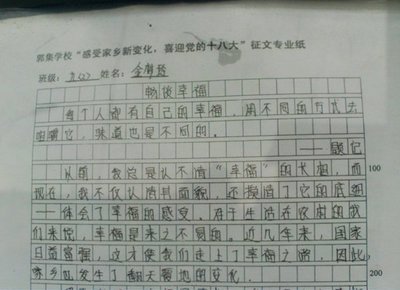 郭集学校“感受家乡新变化，喜迎党的十八大”征文专业纸
班级：九(2) 姓名：
畅谈幸福
每个人都有自己的幸福，用不同的方式去
咀嚼它，味道也是不同的。
——题记
从前，我总是认不清“幸福”的长相，而 100
现在，我不仅认清其面貌，还摸清了它的底细
——体会了幸福的感受。在于生活在农村的我
们来说，幸福是来之不易的。近几年来，国家
日益富强，这才使我们走上了幸福之路，因此，
家乡也发生了翻天覆地的变化。 200